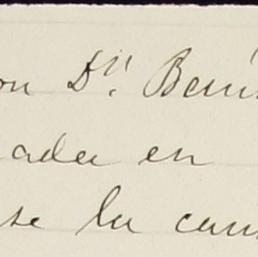 on Dn. Beni
ada en
se la caus